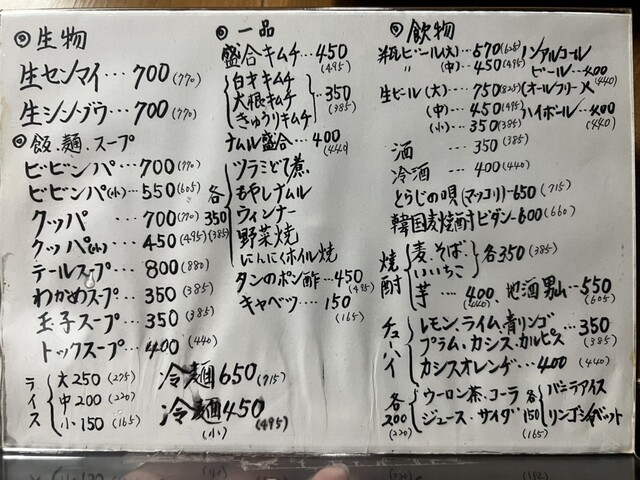 ◎生物
生センマイ…700(770)
生シンゾウ…700(770)
◎飯.麺.スープ
ビビンバ…700(770)
ビビンバ(小)…550(605)
クッパ…700(770)
クッパ(小)…450(495)
テールスープ…800(880)
わかめスープ…350(385)
玉子スープ…350(385)
トックスープ…400(440)
ライス
大250(275)
中200(220)
小150(165)
◎一品
盛合キムチ…450(495)
白才キムチ
大根キムチ…350(385)
きゅうりキムチ
ナムル盛合…400(440)
各350(385)
ツラミどて煮
もやしナムル
ウィンナー
野菜焼
にんにくホイル焼
タンのポン酢…450(495)
キャベツ…150(165)
冷麺650(715)
冷麺450(小)(495)
◎飲物
瓶ビール(大)…570(625)
〃(中)…450(495)
ノンアルコールビール…400(440)
(オールフリー)
生ビール(大)…750(825)
(中)…450(495)
(小)…350(385)
ハイボール…400(440)
酒…350(385)
冷酒…400(440)
とらじの唄(マッコリ)…650(715)
韓国麦焼酎ビダン…600(660)
焼酎
麦.そば.いいちこ 各350(385)
芋…400(440) 地酒男山…550(605)
チュ一ハイ
レモン.ライム.青リンゴ
プラム.カシス.カルピス…350(385)
カシスオレンヂ…400(440)
各200(220)
ウーロン茶.コーラ
ジュース.サイダ
各150(165)
バニラアイス
リンゴシャベット